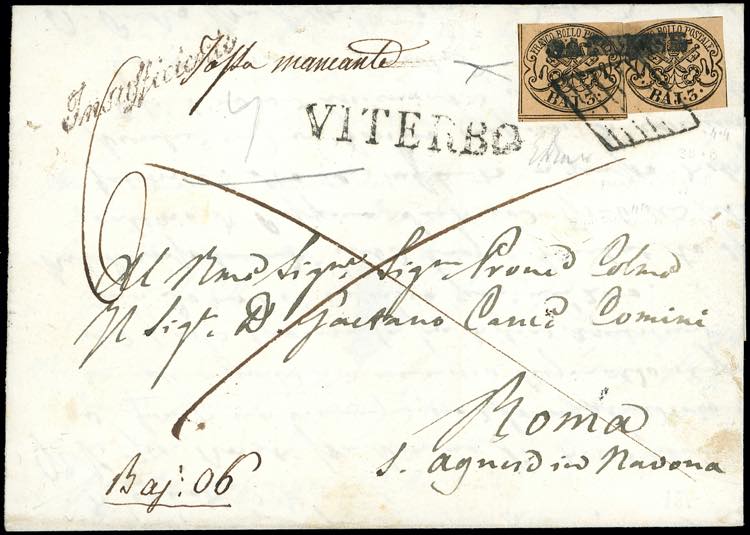 FRANCO BOLLO POSTALE FRANCO BOLLO POSTALE
BAJ. 3. BAJ. 3.
Insufficiente
Tassa mancante
VITERBO
6
Al Rmo Sigre Sigre Prone Colmo
Il Sigr. D. Gaetano Canco Comini
Roma
S. Agnese in Navona
Baj: 06